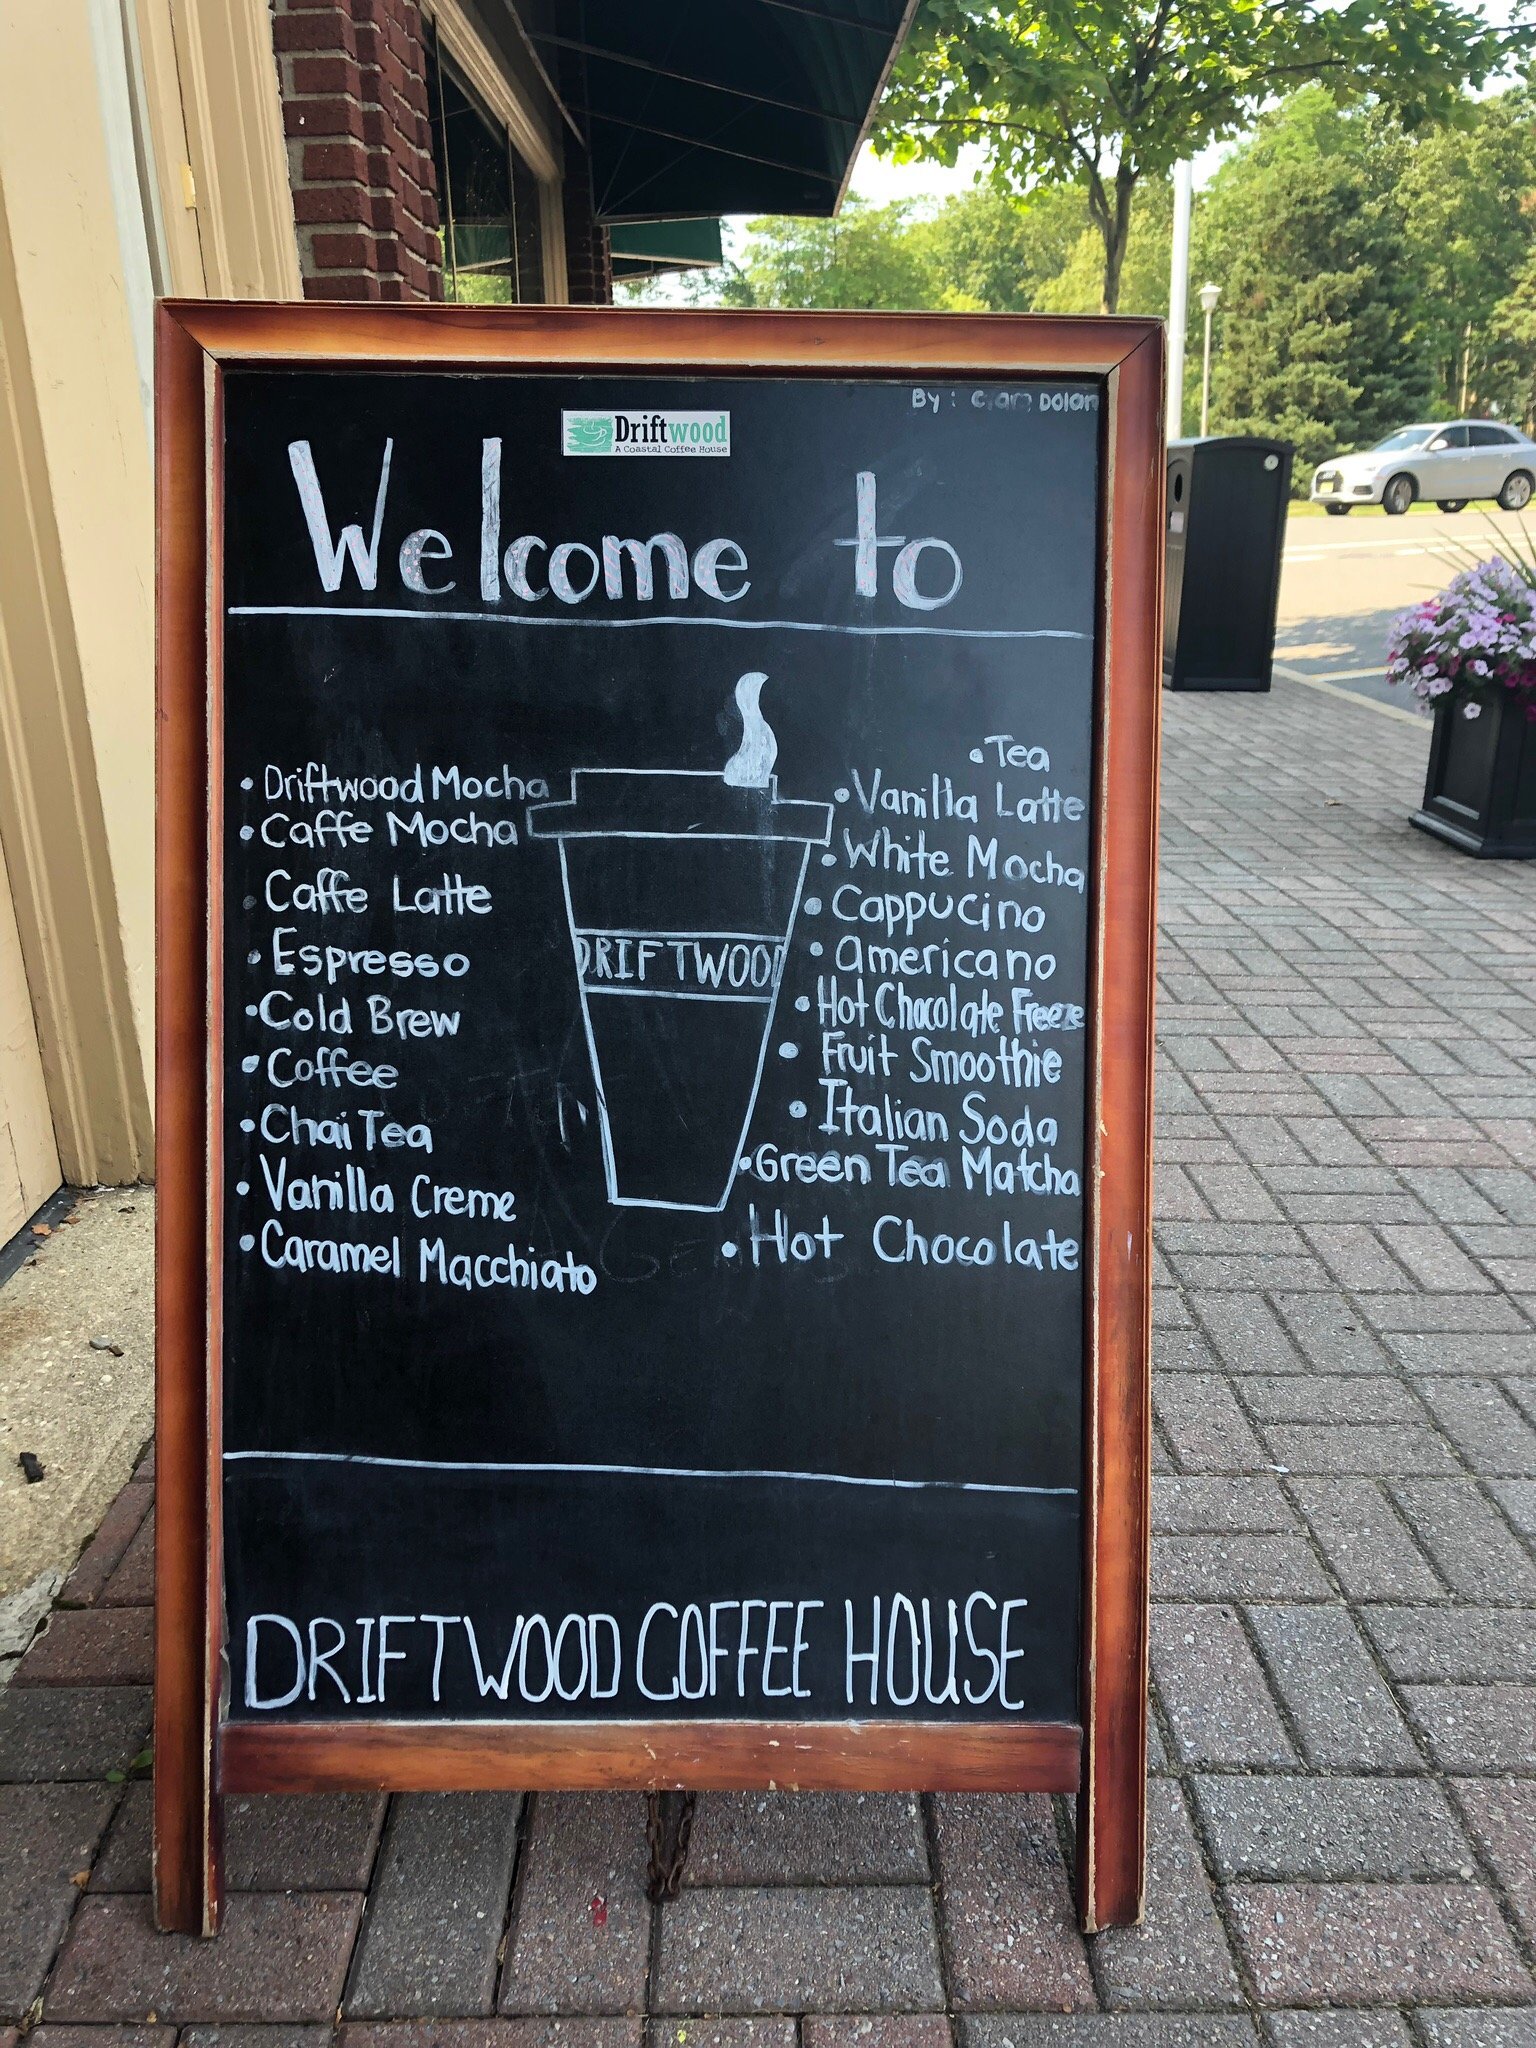 By: Ciam Dolan
Driftwood
A Coastal Coffee House
Welcome to
• Driftwood Mocha
• Caffe Mocha
• Caffe Latte
• Espresso
• Cold Brew
• Coffee
• Chai Tea
• Vanilla Creme
• Caramel Macchiato
DRIFTWOOD
• Tea
• Vanilla Latte
• White Mocha
• Cappucino
• americano
• Hot Chocolate Freeze
• Fruit Smoothie
• Italian Soda
• Green Tea Matcha
• Hot Chocolate
DRIFTWOOD COFFEE HOUSE